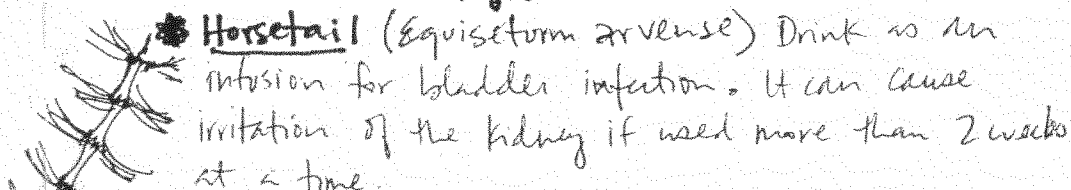 * Horsetail (Equisetum arvense) Drink as an
infusion for bladder infection. It can cause
irritation of the kidney if used more than 2 weeks
at a time.